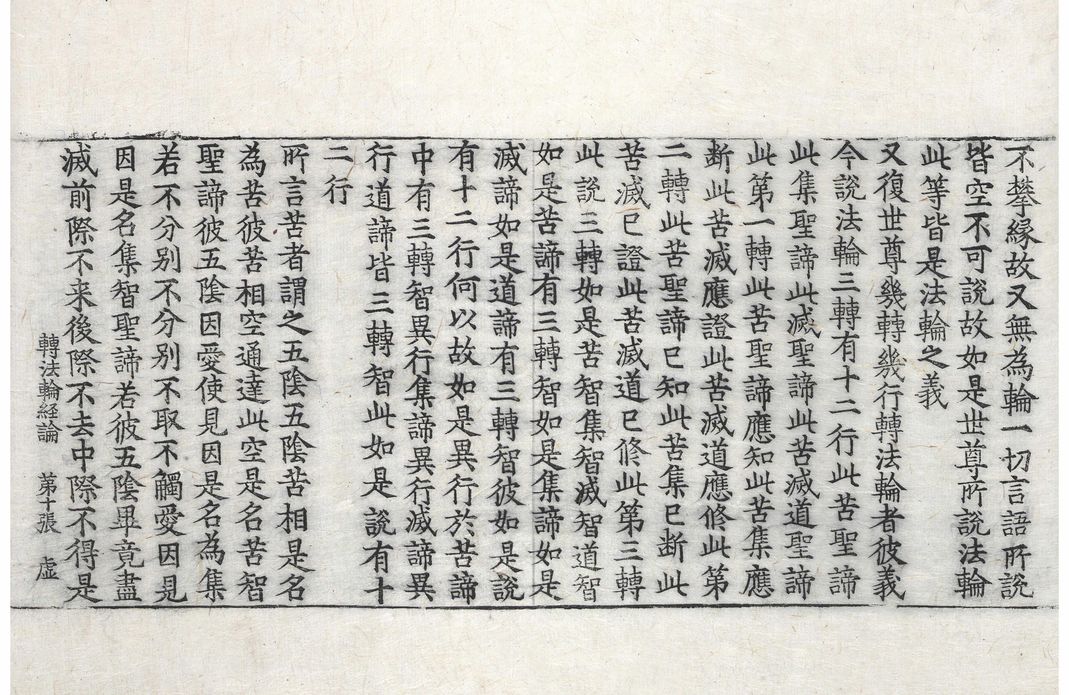 不攀緣故又無為輪一切言語所說
皆空不可說故如是世尊所說法輪
此等皆是法輪之義
又復世尊幾轉幾行轉法輪者彼義
今說法輪三轉有十二行此苦聖諦
此集聖諦此滅聖諦此苦滅道聖諦
此第一轉此苦聖諦應知此苦集應
断此苦滅應證此苦滅道應修此第
二轉此苦聖諦已知此苦集已断此
苦滅已證此苦滅道已修此第三轉
此說三轉如是苦智集智滅智道智
如是苦諦有三轉智如是集諦如是
滅諦如是道諦有三轉智彼如是說
有十二行何以故如是異行於苦諦
中有三轉智異行集諦異行滅諦異
行道諦皆三轉智此如是說有十
二行
所言苦者謂之五陰五陰苦相是名
為苦彼苦相空通達此空是名苦智
聖諦彼五陰因愛使見因是名為集
若不分別不分別不取不觸愛因見
因是名集智聖諦若彼五陰畢竟盡
滅前際不来後際不去中際不得是
轉法輪経論 第十張 虛